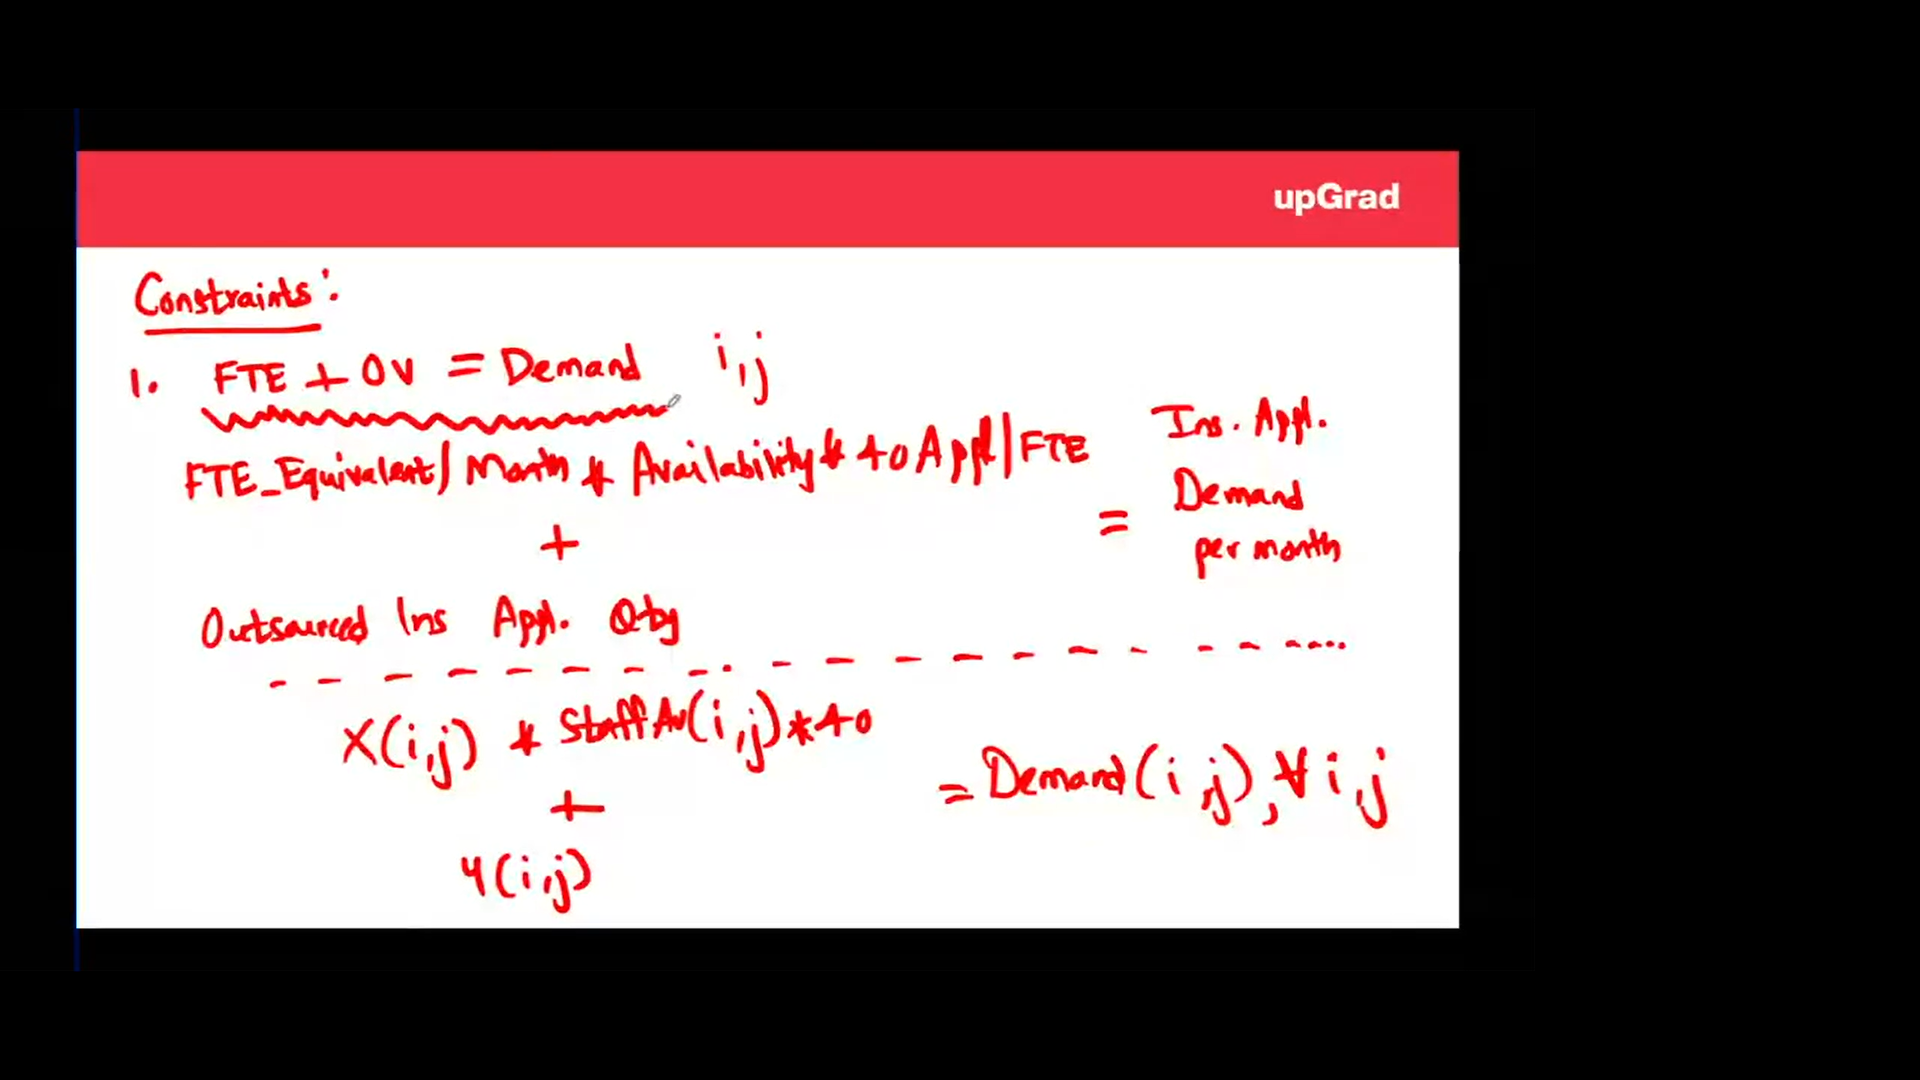 upGrad
Constraints:
1. FTE + OV = Demand i,j
FTE_Equivalent/Month * Availability * 40 Appl/FTE
+
Outsourced Ins Appl. Qty
= Ins. Appl.
Demand
per month
X(i,j) * StaffAv(i,j) * 40
+
Y(i,j)
= Demand(i,j), ∀ i,j